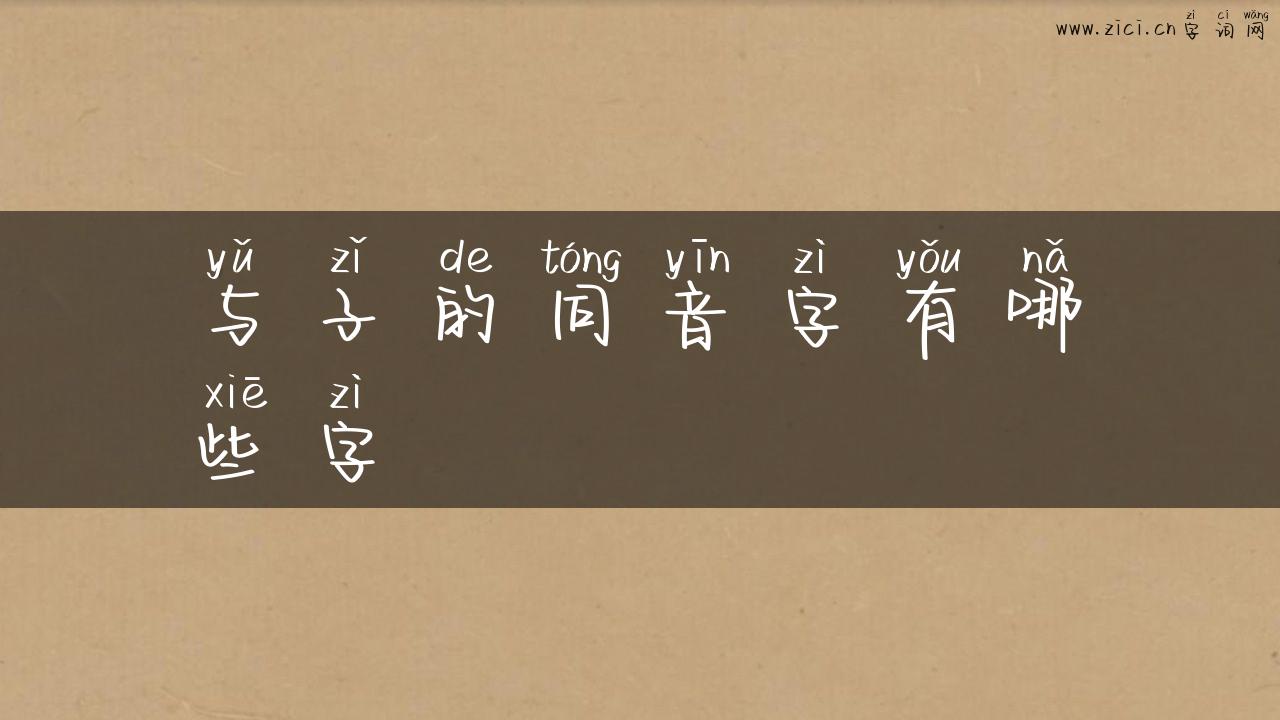 zì cí wǎng
www.zici.cn 字 词 网
yǔ zǐ de tóng yīn zì yǒu nǎ
与 子 的 同 音 字 有 哪
xiē zì
些 字